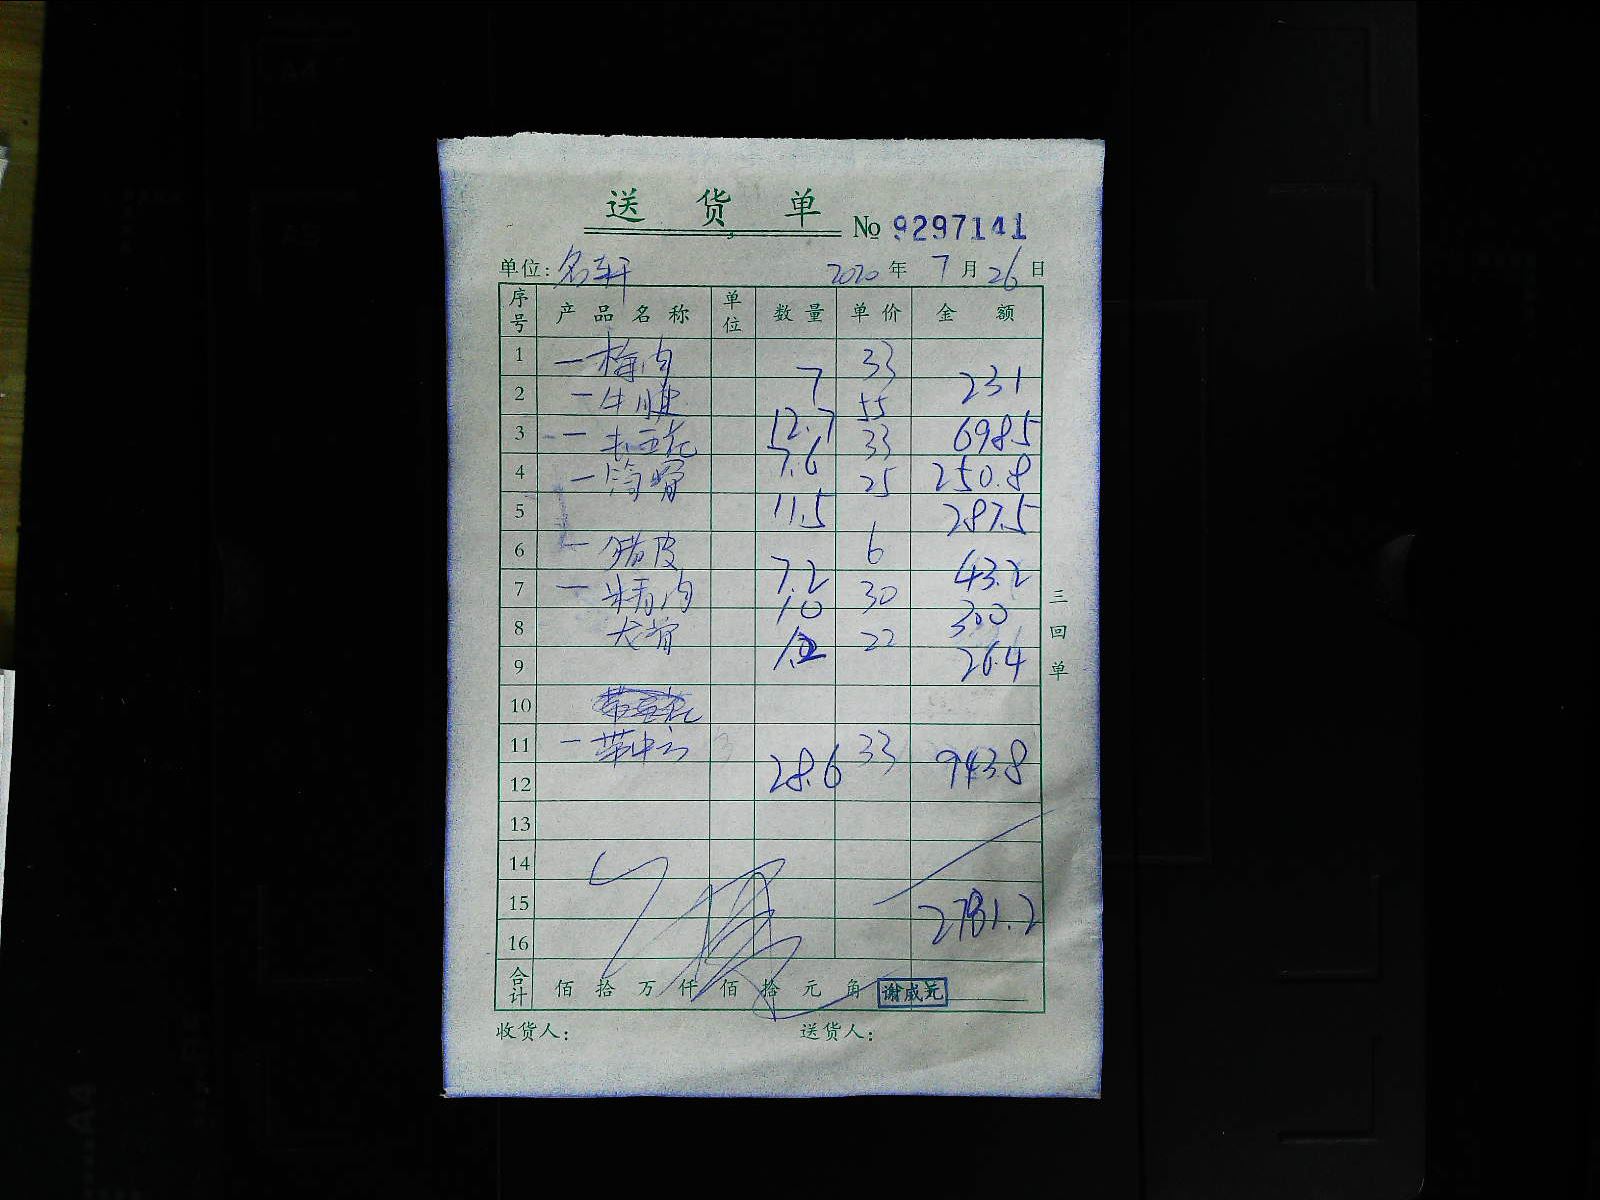 送 货 单 № 9297141
单位: 名轩 2020 年 7 月 26 日
序号 产品名称 单位 数量 单价 金额
1 一梅肉 7 33 231
2 一牛腱 12.7 55 698.5
3 一去五花 7.6 33 250.8
4 一筒骨 11.5 25 287.5
5
6 一猪皮 7.2 6 43.2
7 一精肉 10 30 300
8 大骨 1.2 22 26.4
9
10
11 一 28.6 33 943.8
12
13
14
15 2781.2
16
合计 佰 拾 万 仟 佰 拾 元 角 谢威尧
收货人: 送货人:
三回单